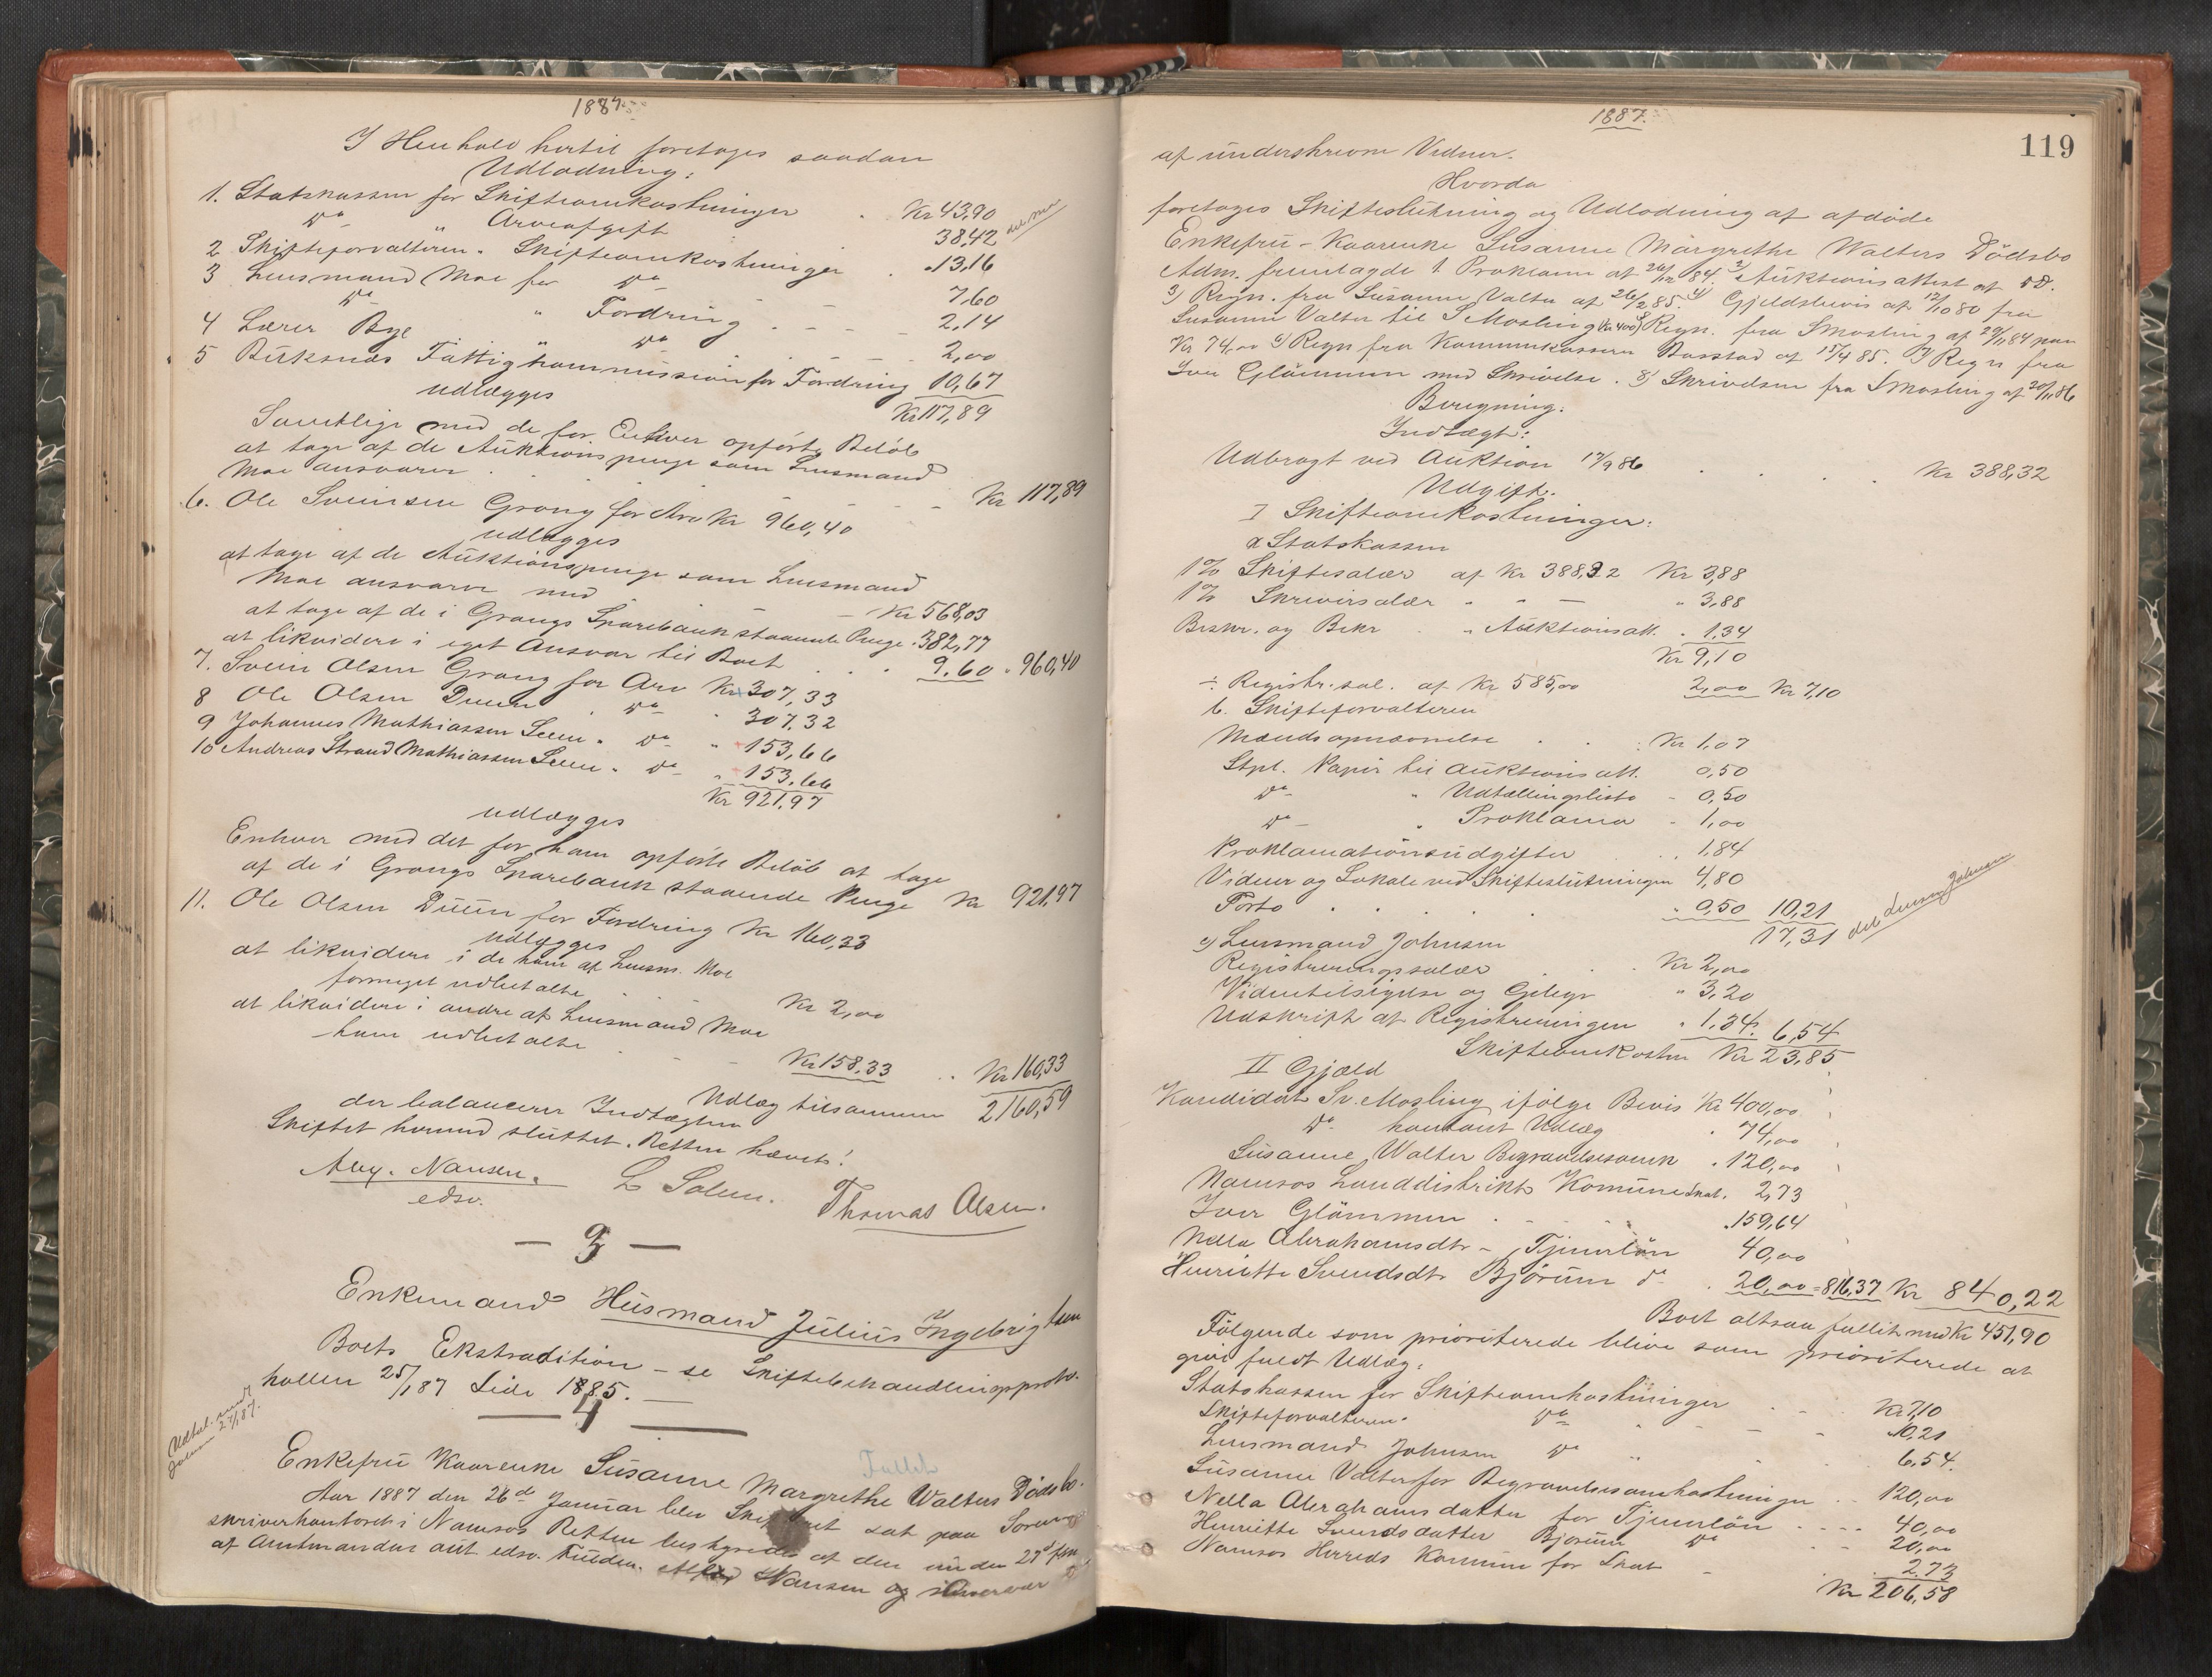 1887.
I Henhold hertil foretoges saadan
Udlodning:
1. Statskassen for Skifteomkostninger . Kr 43,90
do " Arveafgift 38,42
2 Skifteforvalteren " Skifteomkostninger . " 13,16
3 Lensmand Moe for do 7,60
do " Fordring - - - 2,14
4 Lærer Bye do - - - 2,00
5 Buksnæs Fattigkommission for Fordring 10,67
udlægges Kr 117,89
Samtlige med de for Enhver opførte Beløb
at tage af de Auktionspenge som Lensmand
Moe ansvarer - - - Kr 117,89
6. Ole Svensen Grong for Arv Kr 960,40
udlægges
at tage af de Auktionspenge som Lensmand
Moe ansvarer med - - Kr 568,03
at tage af de i Grongs Sparebank staaende Penge " 382,77
at likvidere i eget Ansvar til Boet . . . 9.60 " 960,40
7. Svein Olsen Grong for Arv Kr 307,33
8 Ole Olsen Duun " do " 307,32
9 Johannes Mathiassen Seem " do " 153,66
10 Andreas Strand Mathiassen Seem " do " 153.66
Kr 921,97
udlægges
Enhver med det for ham opførte Beløb at tage
af de i Grongs Sparebank staaende Penge Kr 921,97
11. Ole Olsen Duun for Fordring Kr 160,33
udlægges
at likvidere i de ham af Lensm. Moe
formeget udbetalte . . Kr 2,00
at likvidere i andre af Lensmand Moe
ham udbetalte - - Kr 158,33 . . Kr 160,33
Udlæg tilsammen 2160,59
der balancerer Indtægten
Skiftet hermed sluttet. Retten hævet!
Nansen. L Solem. Thomas Olsen.
edsv.
— 3 —
Enkemand Husmand Julius Ingebrigtsen
Boets Ekstradition – se Skiftebehandlingsproto-
kollen 25/1 87 Side 1885.
— 4 —
27/1 87.
Fallit
Enkefru Kaarenke Susanne Margrethe Walters Dødsbo.
Aar 1887 den 26d Januar blev Skifteret sat paa Soren-
skriverkontoret i Namsos Retten bestyredes af den under 27d
af Amtmanden aut edsv. Fuldm. Nansen og
1887.
119
af underskrevne Vidner.
Hvorda
foretoges Skifteslutning og Udlodning af afdøde
Enkefru Kaarenke Susanne Margrethe Walters Dødsbo
Adm. fremlagde 1. Proklama af 26/12 84. 2) Auktionsattest af
3) Regn. fra Susanne Valter af 26/2 85. 4) Gjeldsbevis af 12/10 80 fra
Susanne Valter til S Mosling (Kr 400) 5) Regn. fra S Mosling af 29/11 84 paa
Kr 74,00 6) Regn fra Kommunekassereren af 15/4 85. 7) Regn fra
Iver Glømmen med Skrivelse. 8) Skrivelsen fra S Mosling af 30/11 86
Beregning.
Indtægt:
Udbragt ved Auktion 17/9 86 . . . Kr 388,32
Udgift.
I Skifteomkostninger:
a Statskassen
1% Skiftesalær af Kr 388,32 Kr 3,88
1% Skriversalær " - — " 3,88
Beskr. og Bekr " Auktionsatt. " 1,34
Kr 9,10
÷ Registr. sal. af Kr 585,00 2,00 Kr 7,10
b. Skifteforvalteren
Mandsopnævnelse . . : Kr 1,07
Stpl. Papir til Auktionsatt. 0,50
do " Udtællingsliste - 0,50
do " Proklama - 1,00
Proklamationsudgifter . . 1,84
Vidner og Lokale ved Skifteslutningen 4,80
Porto . . . . " 0,50 10,21
17,31
c) Lensmand Johnsen
Registreringssalær . . Kr 2,00
Vidnetilsigelse og Gebyr " 3,20
Udskrift af Registreringen " 1,34. 6,54
Skifteomkostn Kr 23,85
II Gjæld
Kandidat Sv. Mosling ifølge Bevis Kr 400,00
do kontant Udlæg . 74,00
Susanne Walter Begravelsesomk " 120,00
Namsos Landdistrikts Komune Skat. 2,73
Iver Glømmen . . . " 159,64
Nella Abrahamsdtr - Tjenerløn 40,00
Henriette Svendsdtr Bjørum do . 20,00 = 816,37 Kr 840,22
Boet altsaa fallit med Kr 451,90
Følgende som prioriterede blive som prioriterede at
give fuldt Udlæg:
Statskassen for Skifteomkostninger . . Kr 7,10
Skifteforvalteren " do " - - 10,21
Lensmand Johnsen do " . 6,54.
Susanne Valter for Begravelsesomkostninger . . 120,00
Nella Abrahamsdatter for Tjenerløn . . . . 40,00
Henriette Svendsdatter Bjørum do . . 20,00
Namsos Herreds Komune for Skat - . . 2.73
Kr 206,58